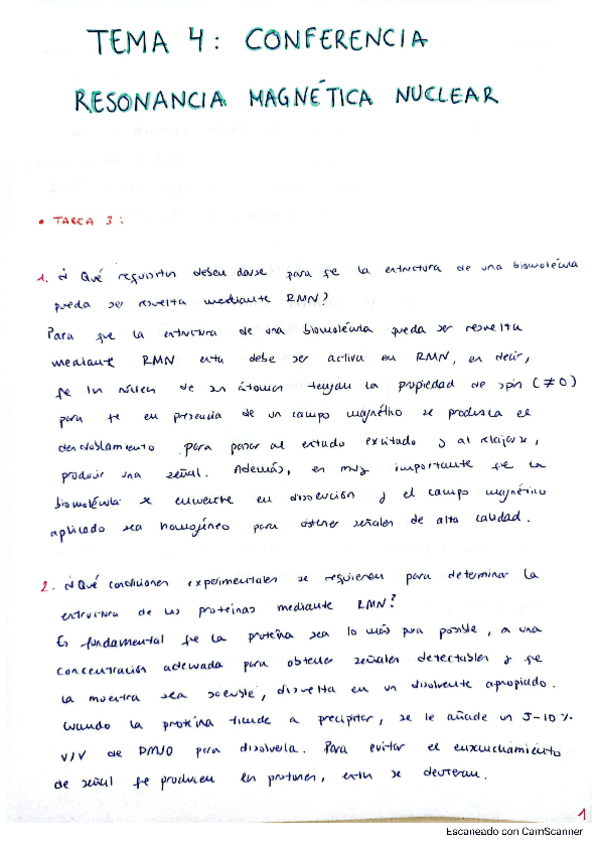 TEMA 4: CONFERENCIA
RESONANCIA MAGNÉTICA NUCLEAR
• TAREA 3:
1. ¿Qué requisitos deben darse para qe la estructura de una biomolécula
pueda ser resuelta mediante RMN?
Para que la estructura de una biomolécula pueda ser resuelta
mediante RMN esta debe ser activa en RMN, es decir,
qe los núcleos de sus átomos tengan la propiedad de spin (≠0)
para qe en presencia de un campo magnético se produzca el
desdoblamiento para pasar al estado excitado y al relajarse,
producir una señal. Además, es muy importante qe la
biomolécula se encuentre en disolución y el campo magnético
aplicado sea homogéneo para obtener señales de alta calidad.
2. ¿Qué condiciones experimentales se requieren para determinar la
estructura de las proteínas mediante RMN?
Es fundamental qe la proteína sea lo más pura posible, a una
concentración adecuada para obtener señales detectables y qe
la muestra sea soluble, disuelta en un disolvente apropiado.
Cuando la proteína tiende a precipitar, se le añade un 5-10%
v/v de DMSO para disolverla. Para evitar el ensanchamiento
de señal qe producen los protones, estos se deuteran.
1
Escaneado con CamScanner